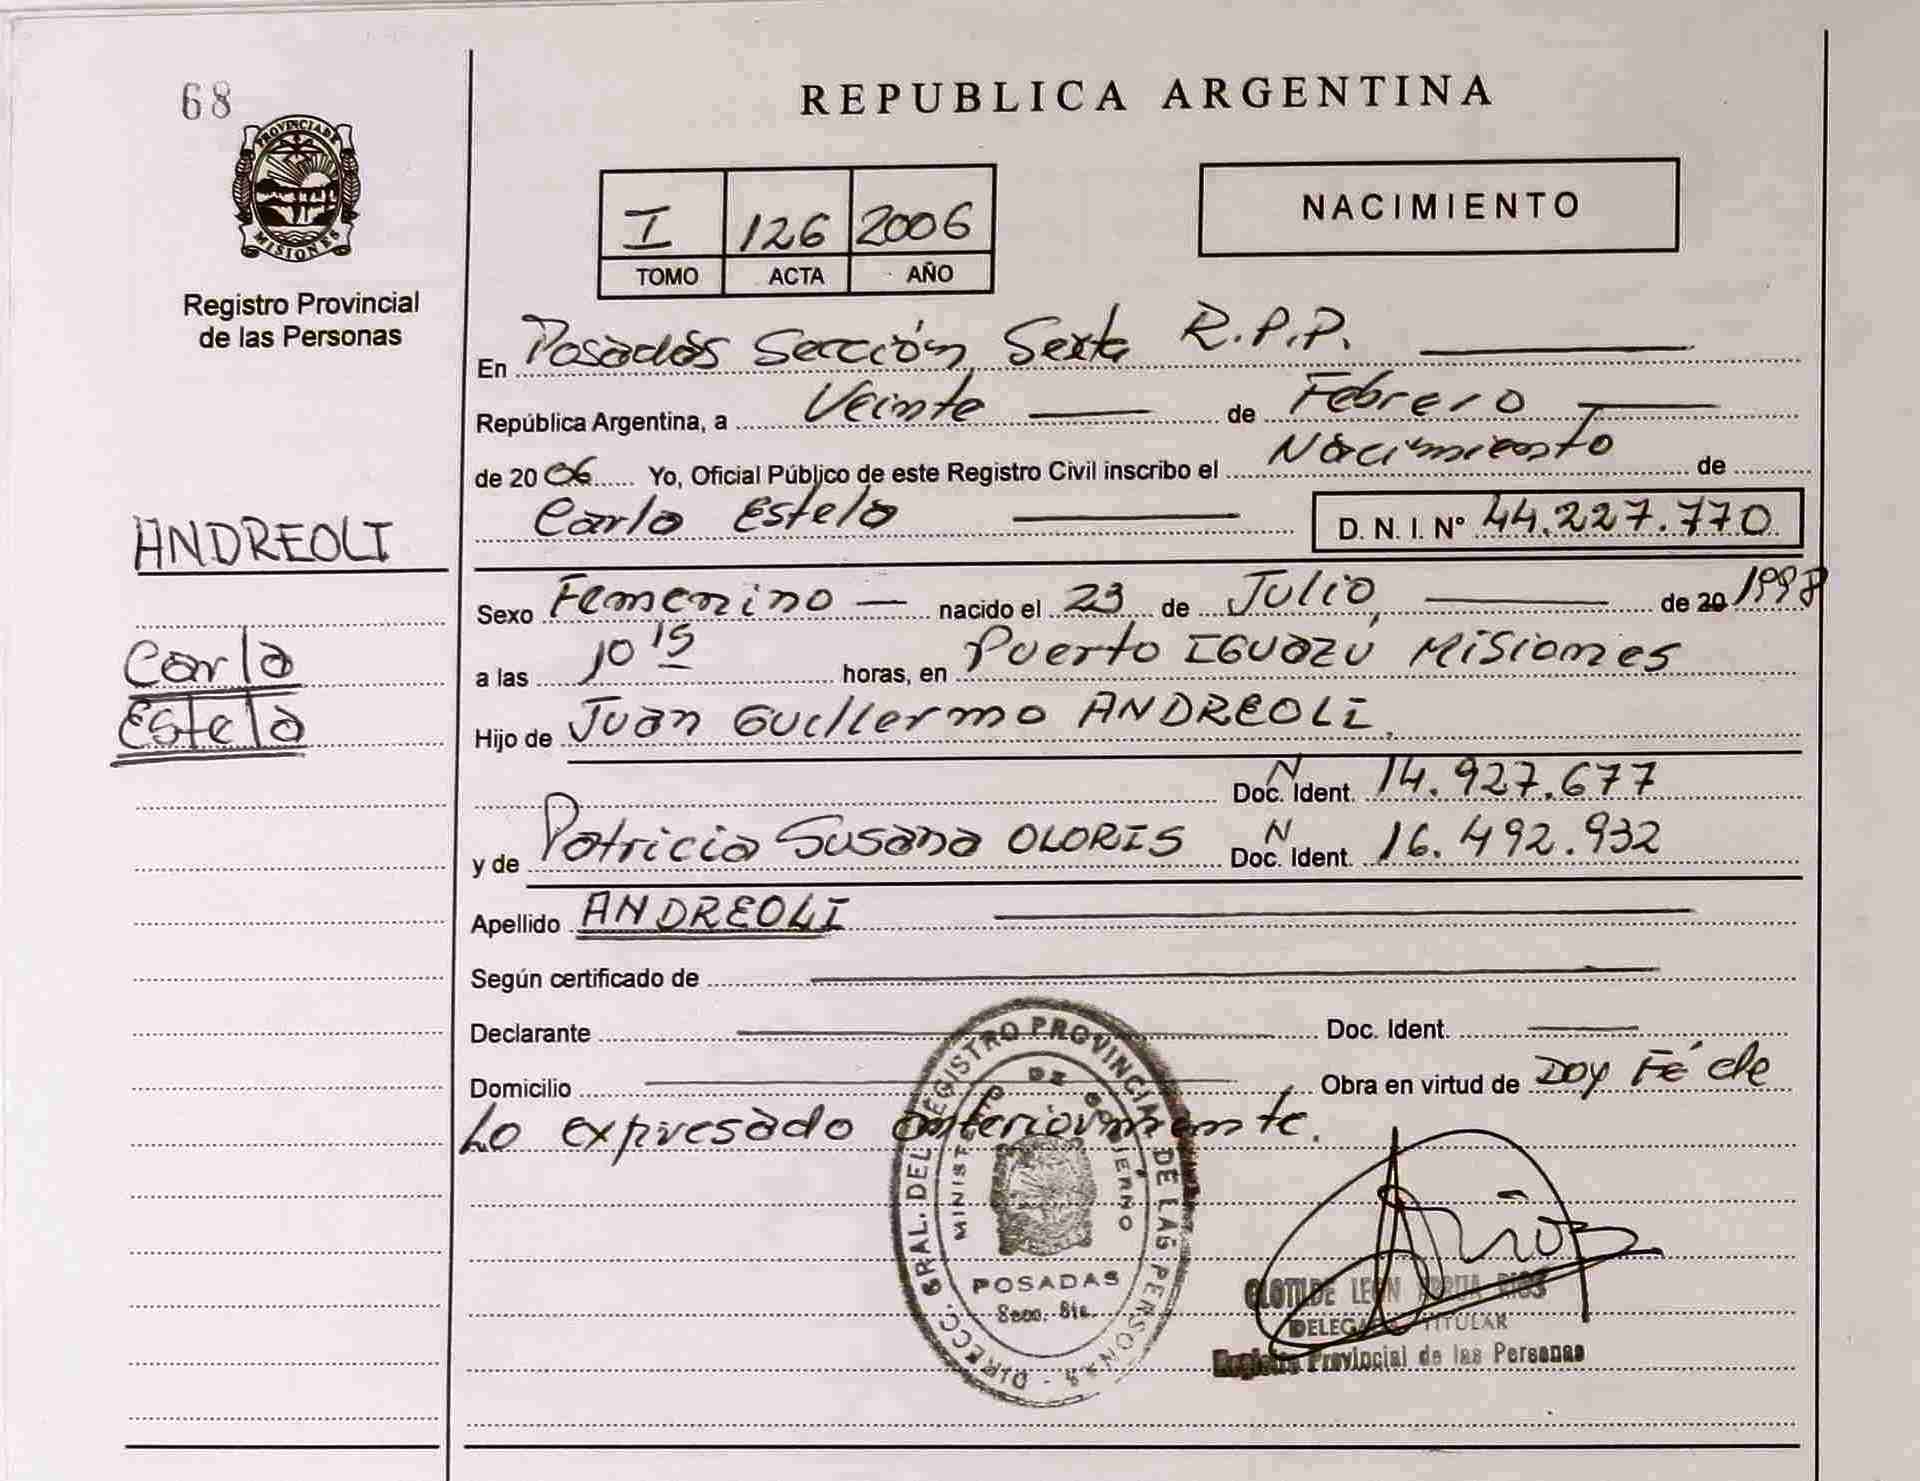 68
PROVINCIA DE
MISIONES
Registro Provincial
de las Personas
ANDREOLI
Carla
Estela
REPUBLICA ARGENTINA
I 126 2006
TOMO ACTA AÑO
NACIMIENTO
En Posadas Sección Sexta R.P.P.
República Argentina, a Veinte de Febrero
de 2006 Yo, Oficial Público de este Registro Civil inscribo el Nacimiento de
Carla Estela D. N. I. N° 44.227.770
Sexo Femenino nacido el 23 de Julio, de 20 1998
a las 10 15 horas, en Puerto IGUAZU, MiSiones
Hijo de Juan Guillermo ANDREOLI,
Doc. N Ident. 14.927.677
y de Patricia Susana OLORIS Doc. N Ident. 16.492.932
Apellido ANDREOLI
Según certificado de
Declarante Doc. Ident.
Domicilio Obra en virtud de Doy Fé de
Lo expresado anteriormente.
DIRECC. GRAL. DEL REGISTRO PROVINCIAL DE LAS PERSONAS
MINISTERIO DE GOBIERNO
POSADAS
Secc. 6ta.
CLOTILDE LEON RIOS
DELEGADA TITULAR
Registro Provincial de las Personas